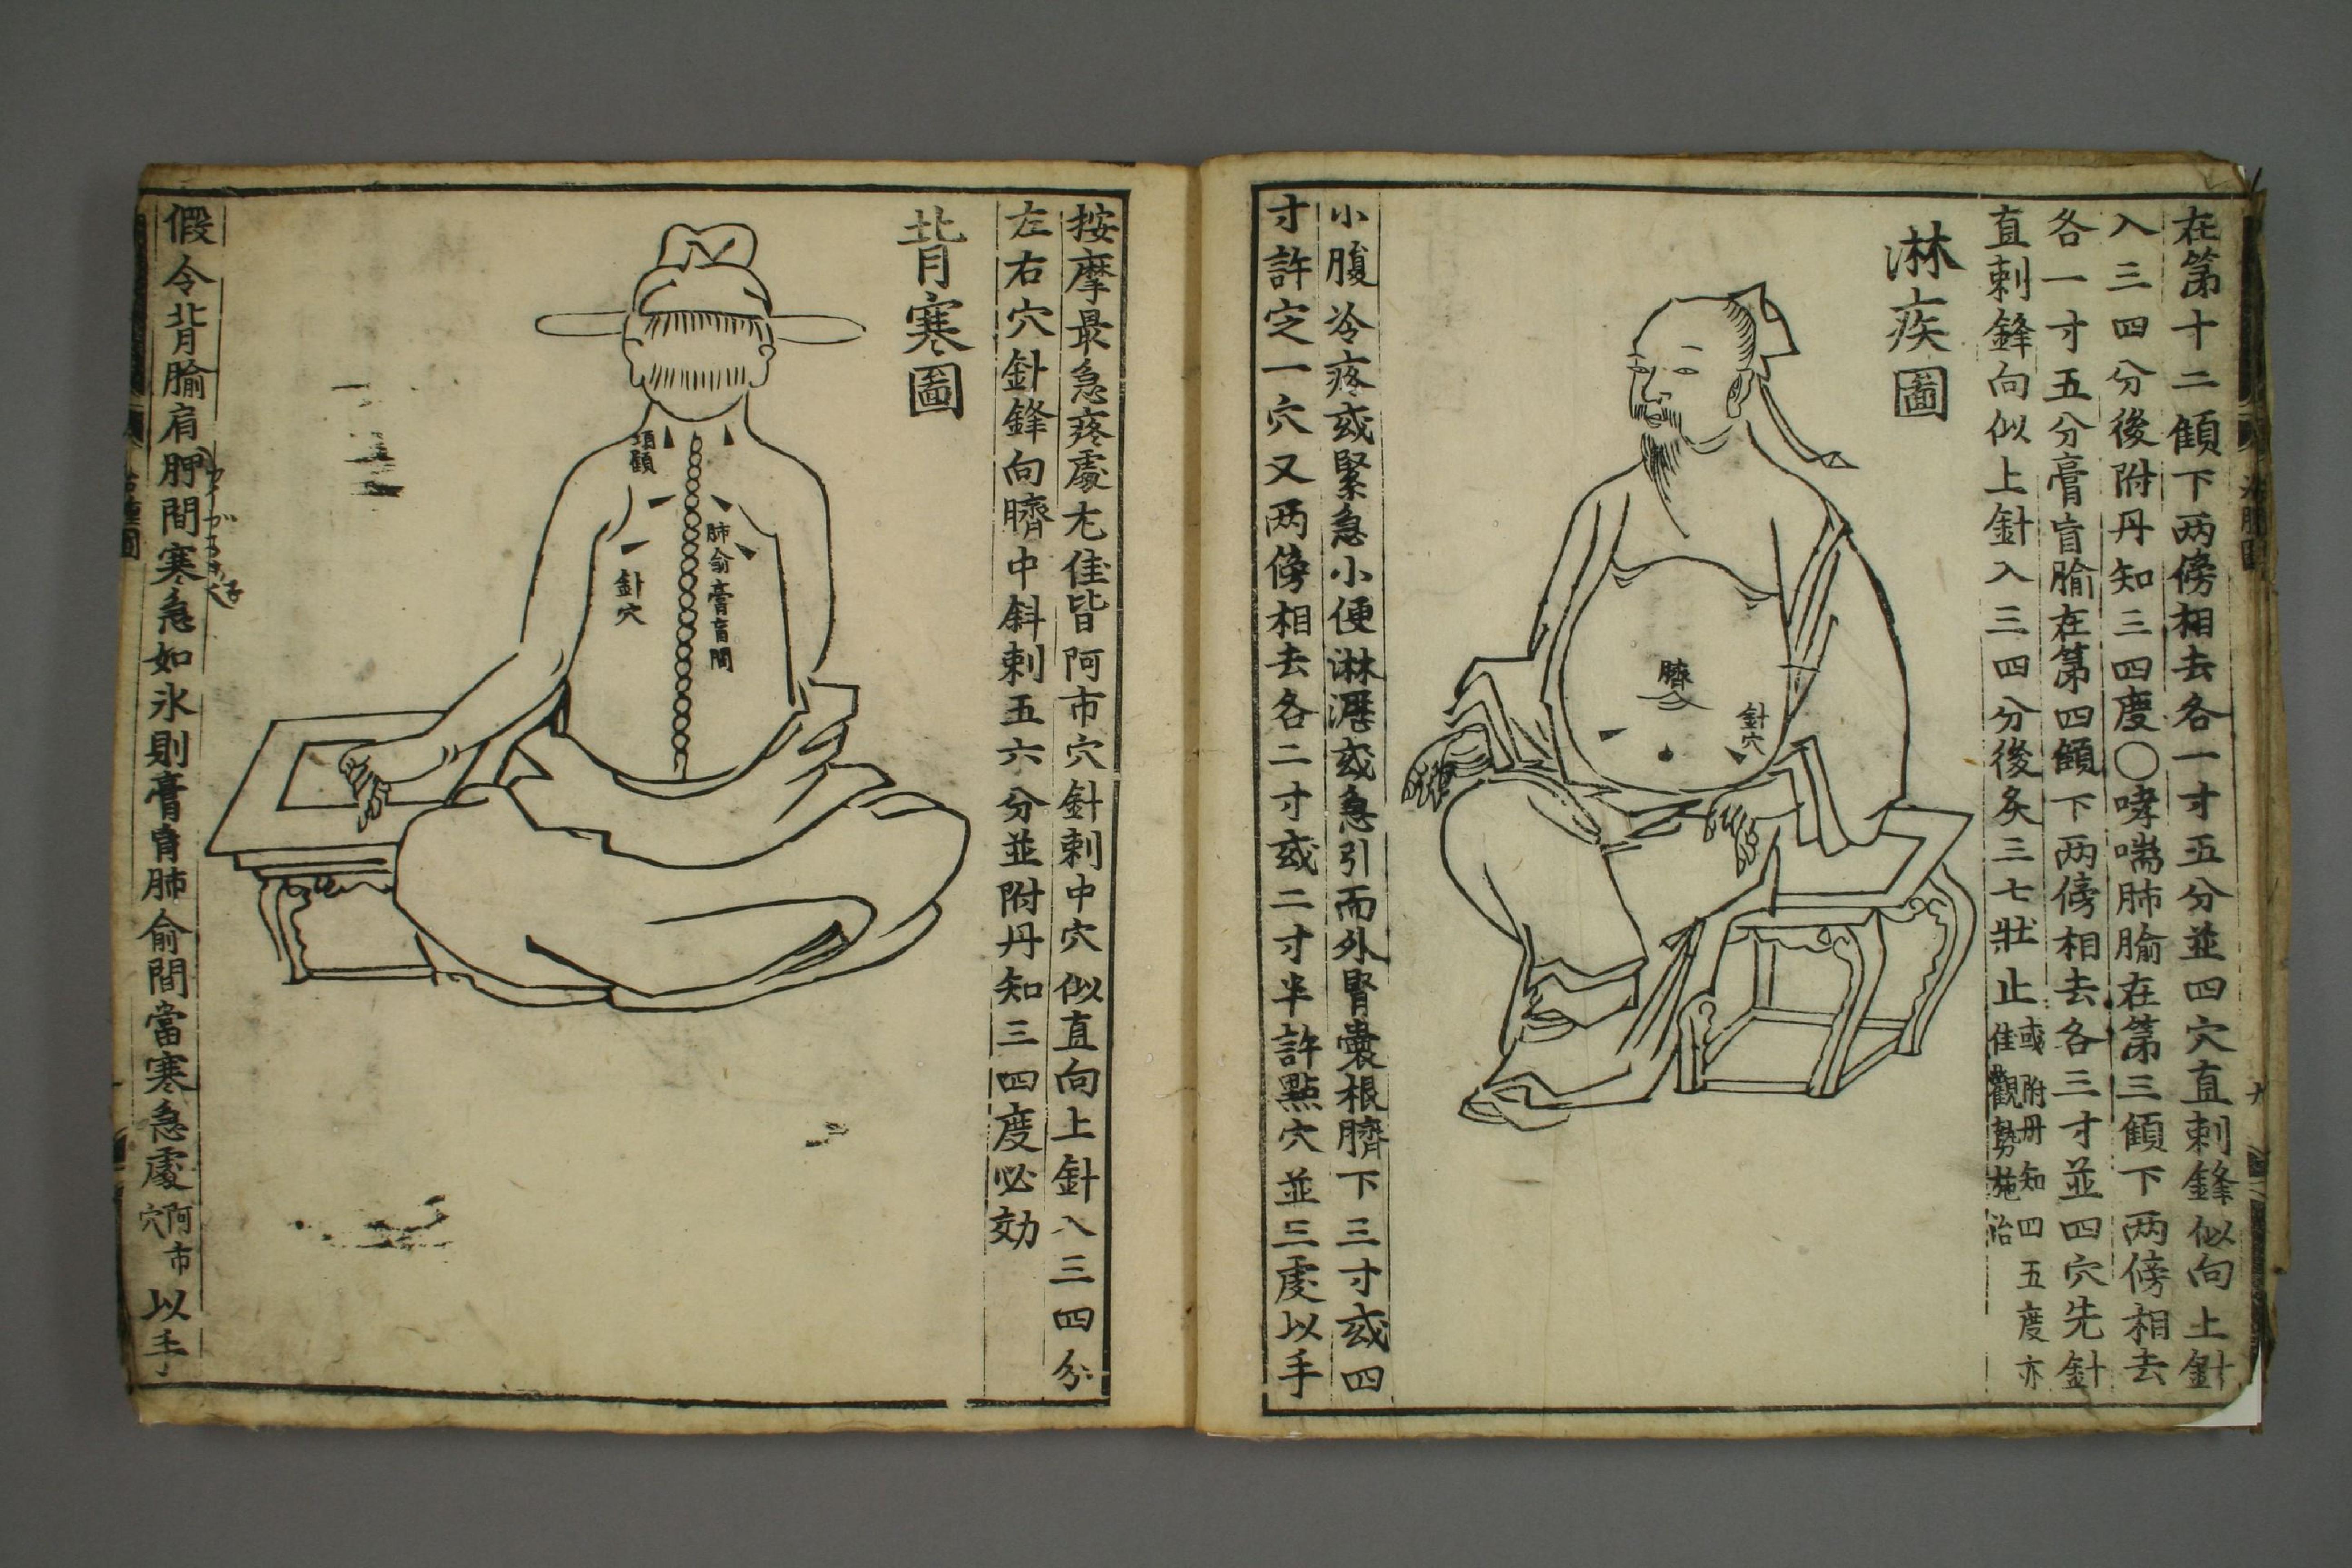 在第十二顀下两傍相去各一寸五分並四穴直刺鋒似向上針
入三四分後附丹知三四度〇哮喘肺腧在第三顀下两傍相去
各一寸五分膏肓腧在第四顀下两傍相去各三寸並四穴先針
直刺鋒向似上針入三四分後灸三七壯止
或附丹知四五度亦
佳觀勢施治
淋疾圖
臍
針穴
小腹冷疼或緊急小便淋瀝或急引而外腎囊根臍下三寸或四
寸許定一穴又两傍相去各二寸或二寸半許點穴並三處以手
按摩最急疼處尤佳皆阿市穴針刺中穴似直向上針入三四分
左右穴針鋒向臍中斜刺五六分並附丹知三四度必効
背寒圖
項顀
肺俞膏肓間
針穴
假令背腧肩胛間寒急如氷則膏肓肺俞間當寒急處
阿市
穴
以手